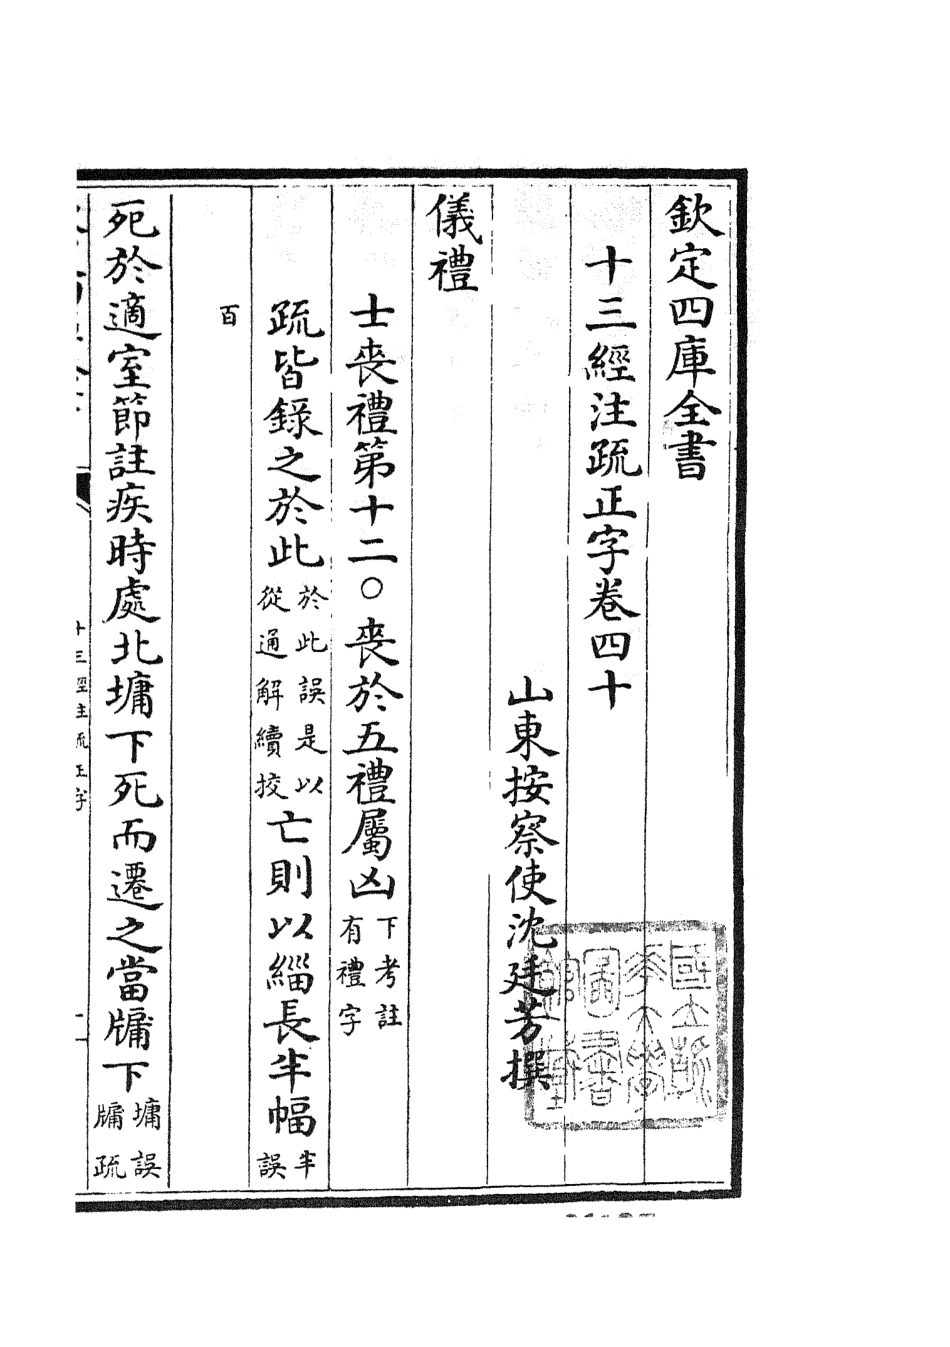 欽定四庫全書
十三經注疏正字卷四十
山東按察使沈廷芳撰
儀禮
士喪禮第十二○喪於五禮屬凶下考註有禮字
疏皆錄之於此於此誤是以從通解續挍亡則以緇長半幅半誤
百
死於適室節註疾時處北墉下死而遷之當牖下墉誤牖疏
十三經注疏正字